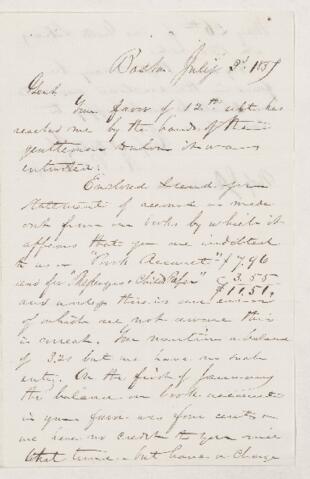 Boston July 2d 1859
Gent
Your favor of 12th ult. has
reached me by the hands of the
gentleman to whom it was
entrusted.
Enclosed I send you
statement of account as made
out from our books by which it
appears that you are indebted
to us in "Book Account" $7.96
and for "Refuges & Oiled Paper" " 3.55
$11.51,
and unless there is an error
of which we are not aware this
is correct. You mention a balance
of 3.21 but we have no such
entry. On the first of January
the balance on book account
in your favor was four cents &
we have no credits to you since
that time - but have a charge